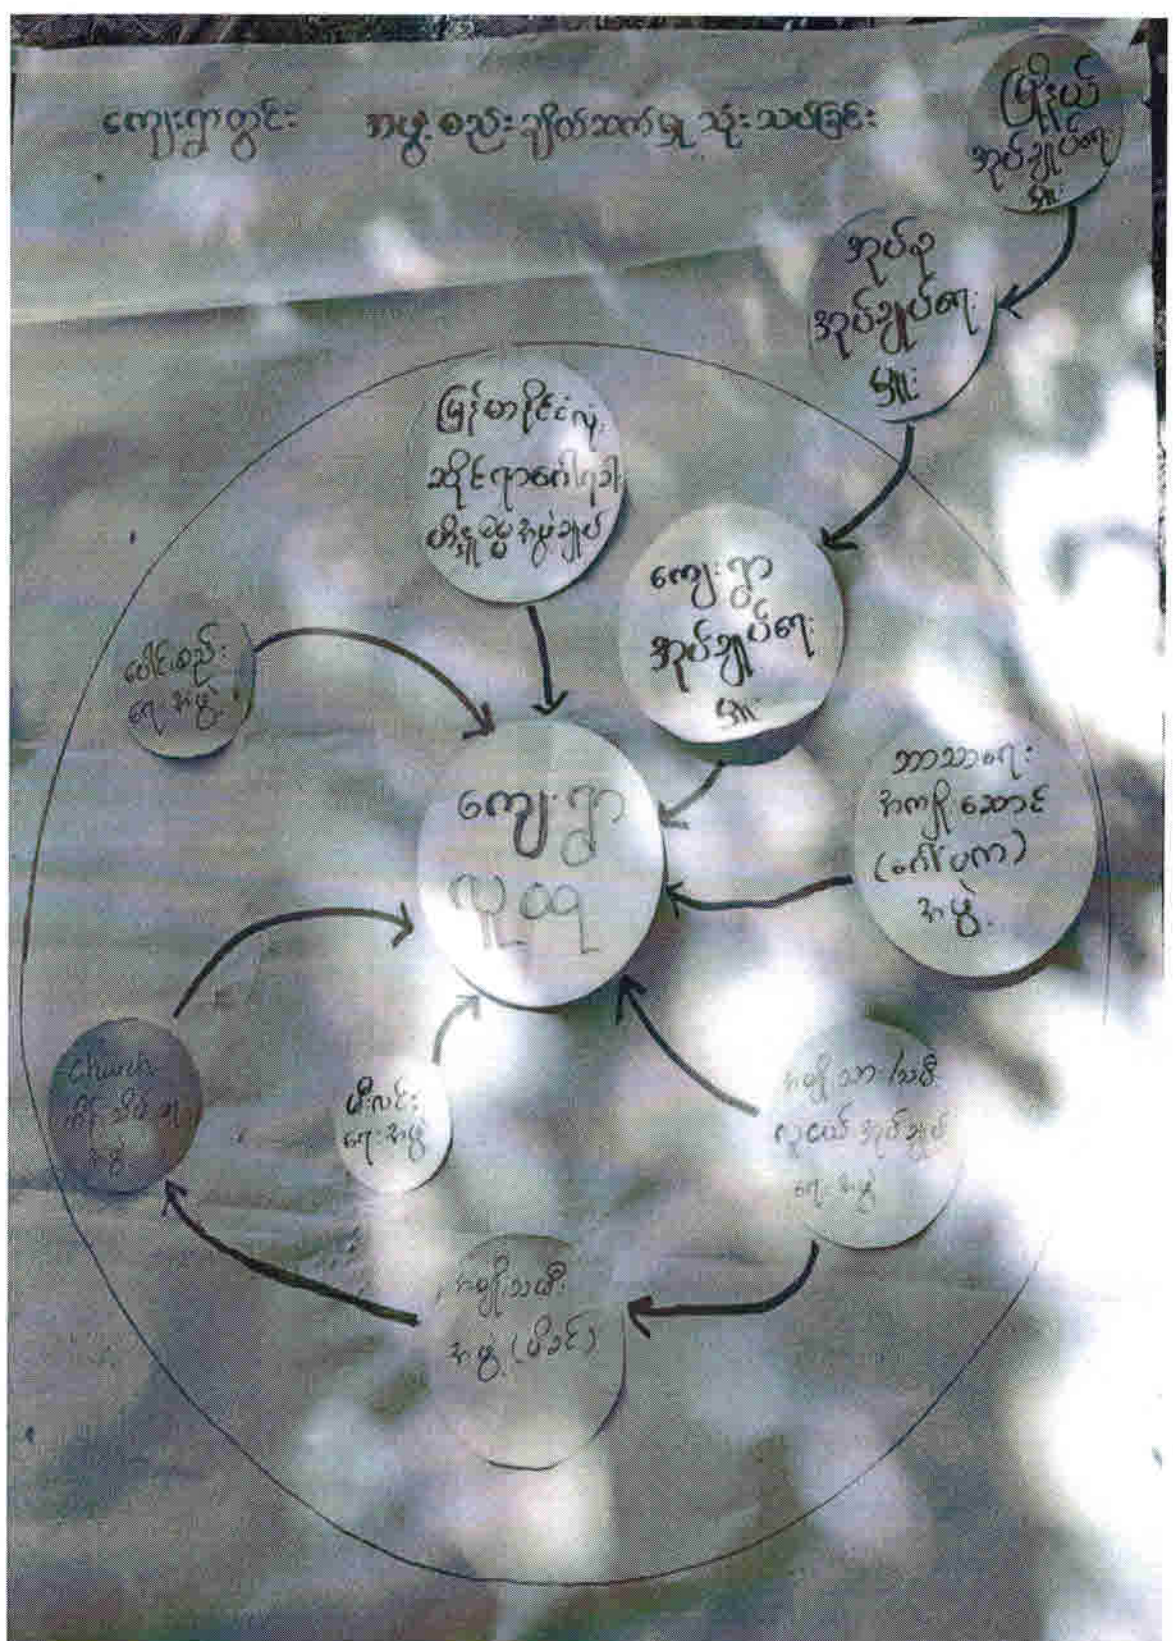 ကျေးရွာတွင်း အဖွဲ့စည်းချိတ်ဆက်မှု သုံးသပ်ခြင်း
မြို့နယ်
အုပ်ချုပ်ရေး
မှူး
အုပ်စု
အုပ်ချုပ်ရေး
မှူး
မြန်မာနိုင်ငံလုံး
ဆိုင်ရာဂေါ်ရခါး
ဟိန္ဒူဓမ္မ အဖွဲ့ချုပ်
ကျေးရွာ
အုပ်ချုပ်ရေး
မှူး
ပေါင်းစည်း
ရေးအဖွဲ့
ကျေးရွာ
လူထု
ဘာသာရေး
အကျိုးဆောင်
(ဂေါပက)
အဖွဲ့
Church
အဖွဲ့
မီးလင်း
ရေးအဖွဲ့
အမျိုးသား/သမီး
လူငယ်အုပ်ချုပ်
ရေးအဖွဲ့
အမျိုးသမီး
အဖွဲ့ (မိခင်)